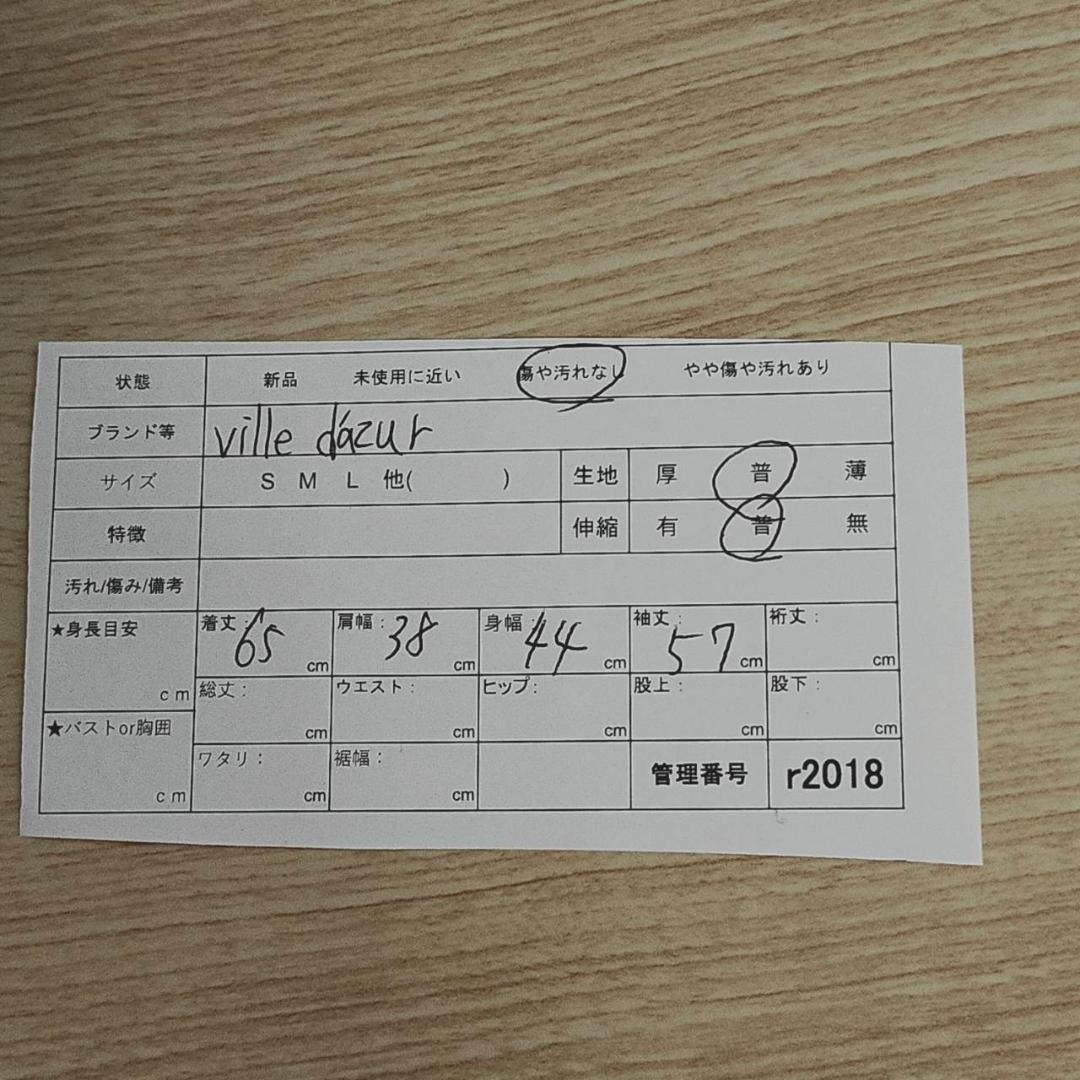 状態 新品 未使用に近い 傷や汚れなし やや傷や汚れあり
ブランド等 ville d'azur
サイズ S M L 他( ) 生地 厚 普 薄
特徴 伸縮 有 普 無
汚れ/傷み/備考
★身長目安 cm 着丈: 65 cm 肩幅: 38 cm 身幅: 44 cm 袖丈: 57 cm 裄丈: cm
総丈: cm ウエスト: cm ヒップ: cm 股上: cm 股下: cm
★バストor胸囲 cm ワタリ: cm 裾幅: cm 管理番号 r2018